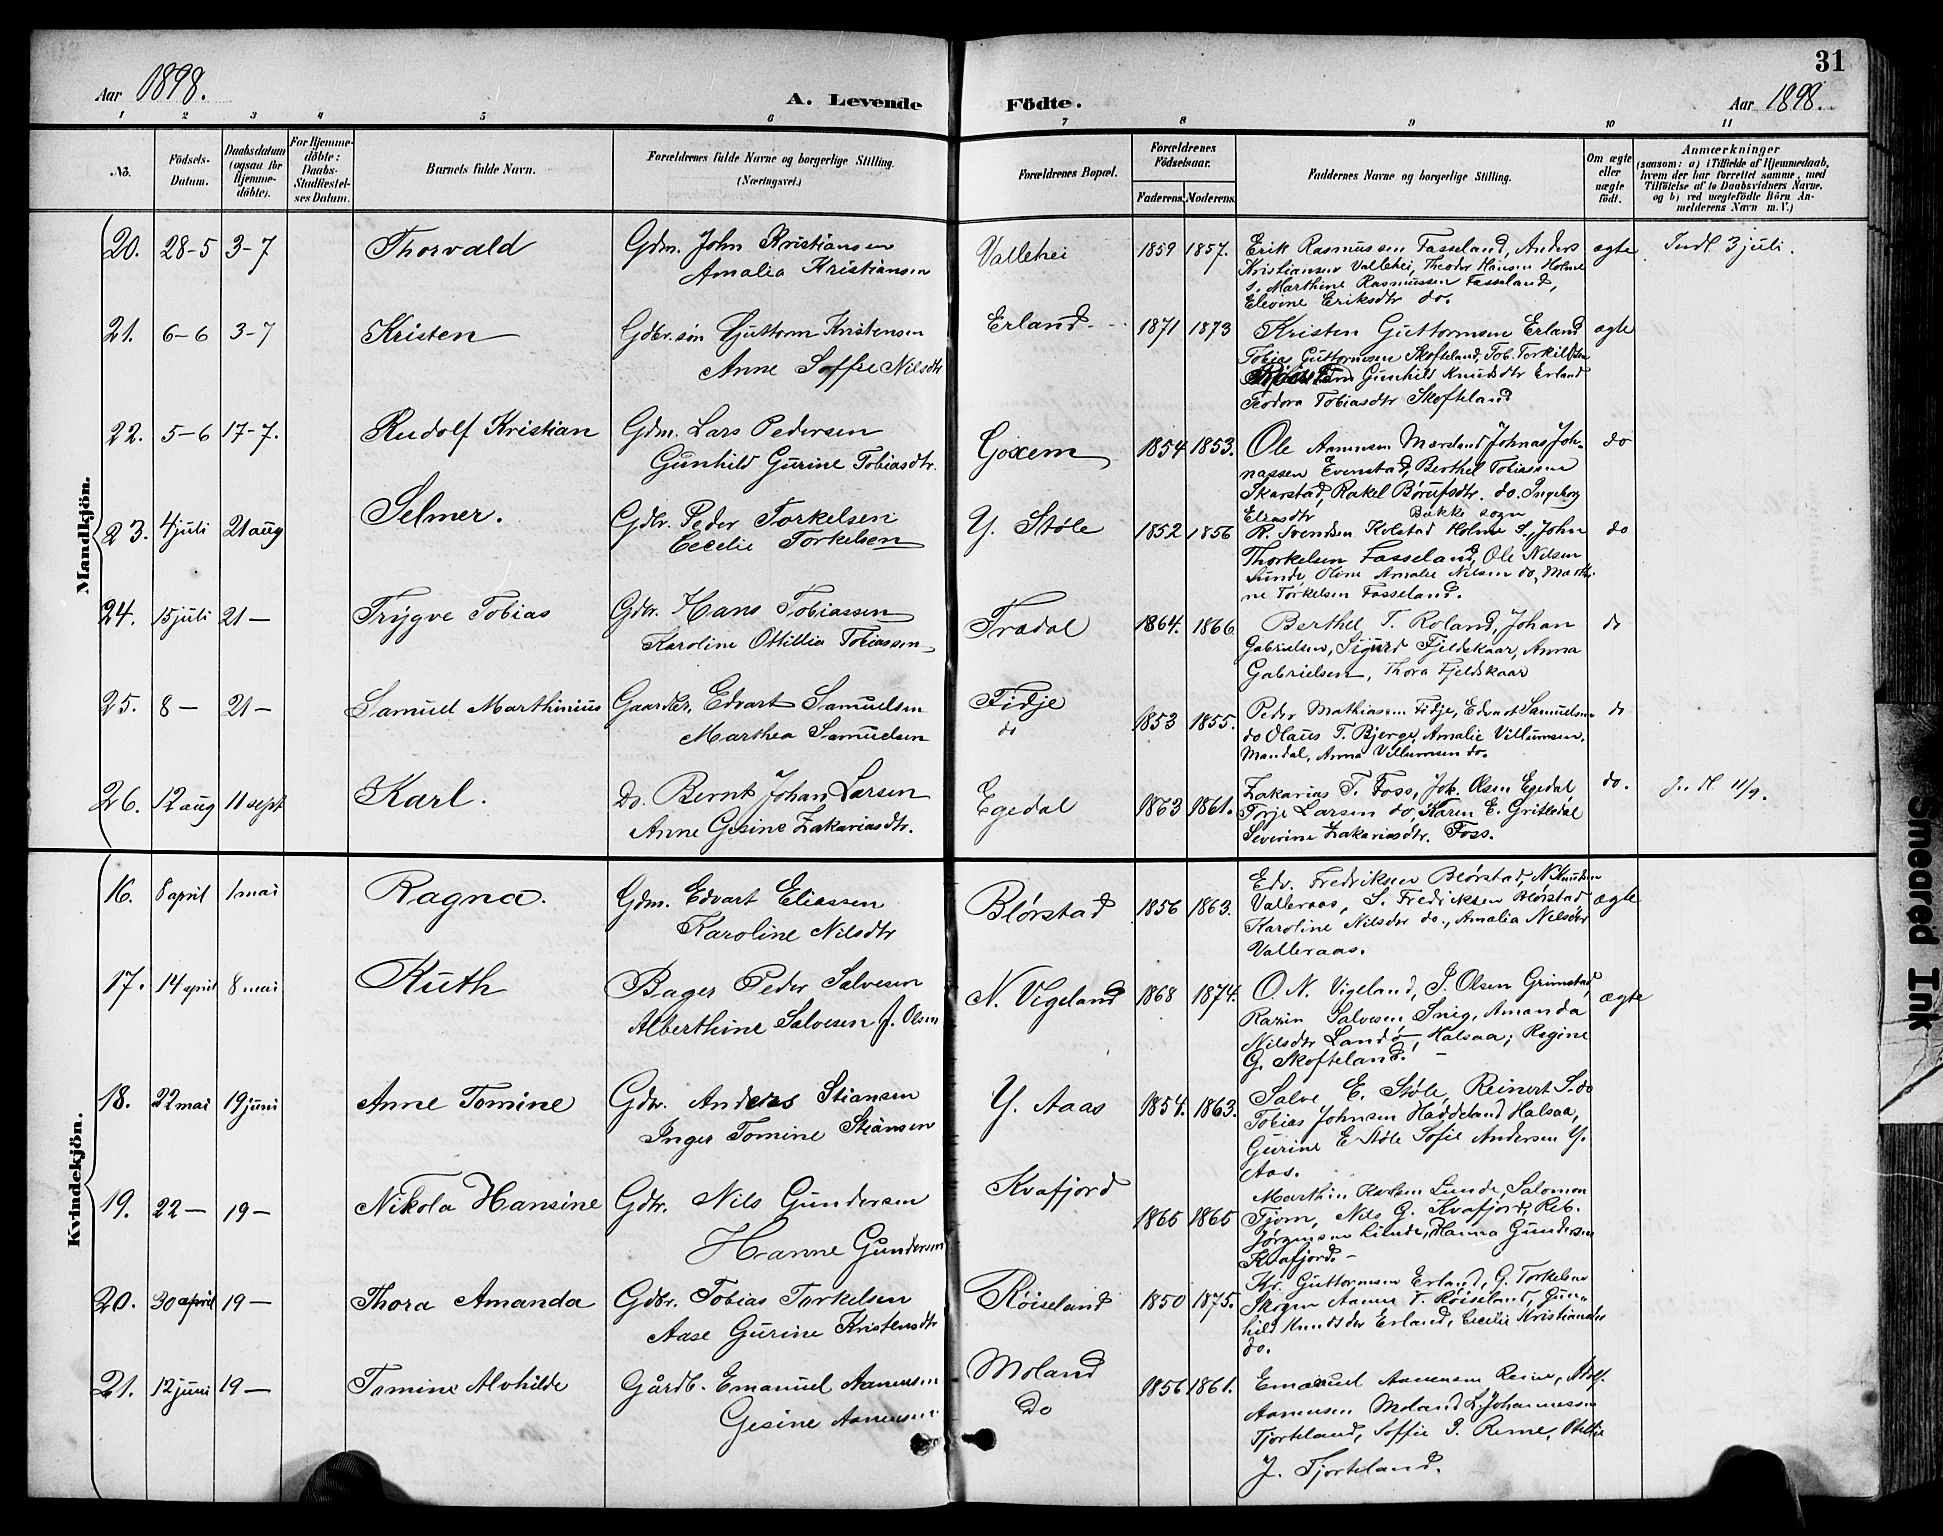 31
Aar 1898.
A. Levende Födte.
Aar 1898.
1 2 3 4 5 6 7 8 9 10 11
No.
Födsels-
Datum.
Daabsdatum
(ogsaa for
Hjemme-
döbte).
For Hjemme-
döbte:
Daabs-
Stadfæstel-
ses Datum.
Barnets fulde Navn.
Forældrenes fulde Navne og borgerlige Stilling.
(Næringsvei.)
Forældrenes Bopæl.
Forældrenes
Födselsaar.
Faderens. Moderens.
Faddernes Navne og borgerlige Stilling.
Om ægte
eller
uægte
födt.
Anmærkninger
(saasom: a) i Tilfælde af Hjemmedaab,
hvem der har forrettet samme, med
Tilföielse af to Daabsvidners Navne.
og b) ved uægtefödte Börn An-
melderens Navn m. V.)
Mandkjön.
20. 28-5 3-7 Thorvald Gdm. John Kristiansen
Amalia Kristiansen
Vallehei 1859 1857. Erik Rasmussen Fasseland, Anders
Kristiansen Vallehei, Theodor Hansen Holme
s. Marthine Rasmussen Fasseland,
Elevine Eriksdtr do.
ægte Indl 3 juli.
21. 6-6 3-7 Kristen Gdbr.søn Guttorm Kristensen
Anne Soffie Nilsdtr
Erland 1871 1873 Kristen Guttormsen Erland
Tobias Guttormsen Skofteland, Tob. Torkildsen
Gunhild Knudsdtr Erland
Teodora Tobiasdtr Skofteland
ægte
22. 5-6 17-7. Rudolf Kristian Gdm. Lars Pedersen
Gunhild Gurine Tobiasdtr.
Goxem 1854 1853. Ole Aanensen Mærsland, Johnas Joh-
nassen Evenstad, Berthel Tobiassen
Skarstad, Rakel Børufsdtr. do. Ingeborg
Eliasdtr Bakke sogn
do
23. 4 juli 21 aug Selmer. Gdbr. Peder Torkelsen
Cecelie Torkelsen
Y. Støle 1852 1856 R. Svendsen Kolstad Holme S., John
Thorkelsen Fasseland, Ole Nilsen
Lunde, Oline Amalie Nilsen do, Marthi-
ne Torkelsen Fasseland.
do
24. 15 juli 21 — Trygve Tobias Gdbr. Hans Tobiassen
Karoline Ottillia Tobiassen
Tradal 1864. 1866 Berthel T. Roland, Johan
Gabrielsen, Sigurd Fjeldskaar, Anna
Gabrielsen, Thora Fjeldskaar
do
25. 8 — 21 — Samuel Marthinius Gaardbr. Edvart Samuelsen
Marthea Samuelsen
Fidje
do
1853 1855. Peder Mathiassen Fidje, Edvart Samuelsen
do Olaus T. Bjerge, Amalie Villumsen,
Mandal, Anna Villumsen do.
do
26. 12 aug 11 sept Karl. do. Bernt Johan Larsen
Anne Gesine Zakariasdtr.
Egedal 1863 1861. Zakarias T. Foss, Joh. Olsen Egedal
Torje Larsen do, Karen E. Grittedal
Severine Zakariasdtr. Foss.
do. In. M 11/9.
Kvindekjön.
16. 8 april 1 mai Ragna. Gdm. Edvart Eliassen
Karoline Nilsdtr
Blørstad 1856 1863. Edv. Fredriksen Blørstad, N. Knudsen
Valleraas, S. Fredicksen Blørstad
Karoline Nilsdtr do., Amalia Nilsdtr
Valleraas.
ægte
17. 14 april 8 mai Ruth Bager Peder Salvesen
Alberthine Salvesen f. Olsen
N. Vigeland 1868 1874. O. N. Vigeland, S. Olsen Grimstad,
Razin Salvesen Snig, Amanda
Nilsdtr Landø, Halsaa; Regine
G. Skofteland. —
ægte
18. 22 mai 19 juni Anne Tomine Gdbr. Anders Stiansen
Inger Tomine Stiansen
Y. Aaas 1854. 1863. Salve E. Støle, Reinert S. do
Tobias Johnsen Haddeland Halsaa,
Gurine E Støle Sofie Andersen Y.
Aas.
19. 22 — 19 — Nikola Hansine Gdbr. Nils Gundersen
Hanne Gundersen
Kvafjord 1865 1865 Marthin Karlsen Lunde, Salomon
Tjom, Nils G. Kvafjord, Reb.
Jørgensen Lunde, Hanna Gundersen
Kvafjord. —
20. 30 april 19 — Thora Amanda Gdbr. Tobias Torkelsen
Aase Gurine Kristensdtr
Røiseland 1850 1875. Kr. Guttormsen Erland, G. Torkelsen
Skogen Aanen T. Røiseland, Gun-
hild Knudsdtr Erland, Cecilie Kristiansdtr
do.
21. 12 juni 19 — Tomine Alvhilde Gårdb. Emanuel Aanensen
Gesine Aanensen
Moland
do
1856 1861. Emanuel Aanensen Reme, Adolf.
Aanensen Moland L. Johannessen
Tjorteland, Soffie P. Reme,
J. Tjorteland.
Smeared Ink